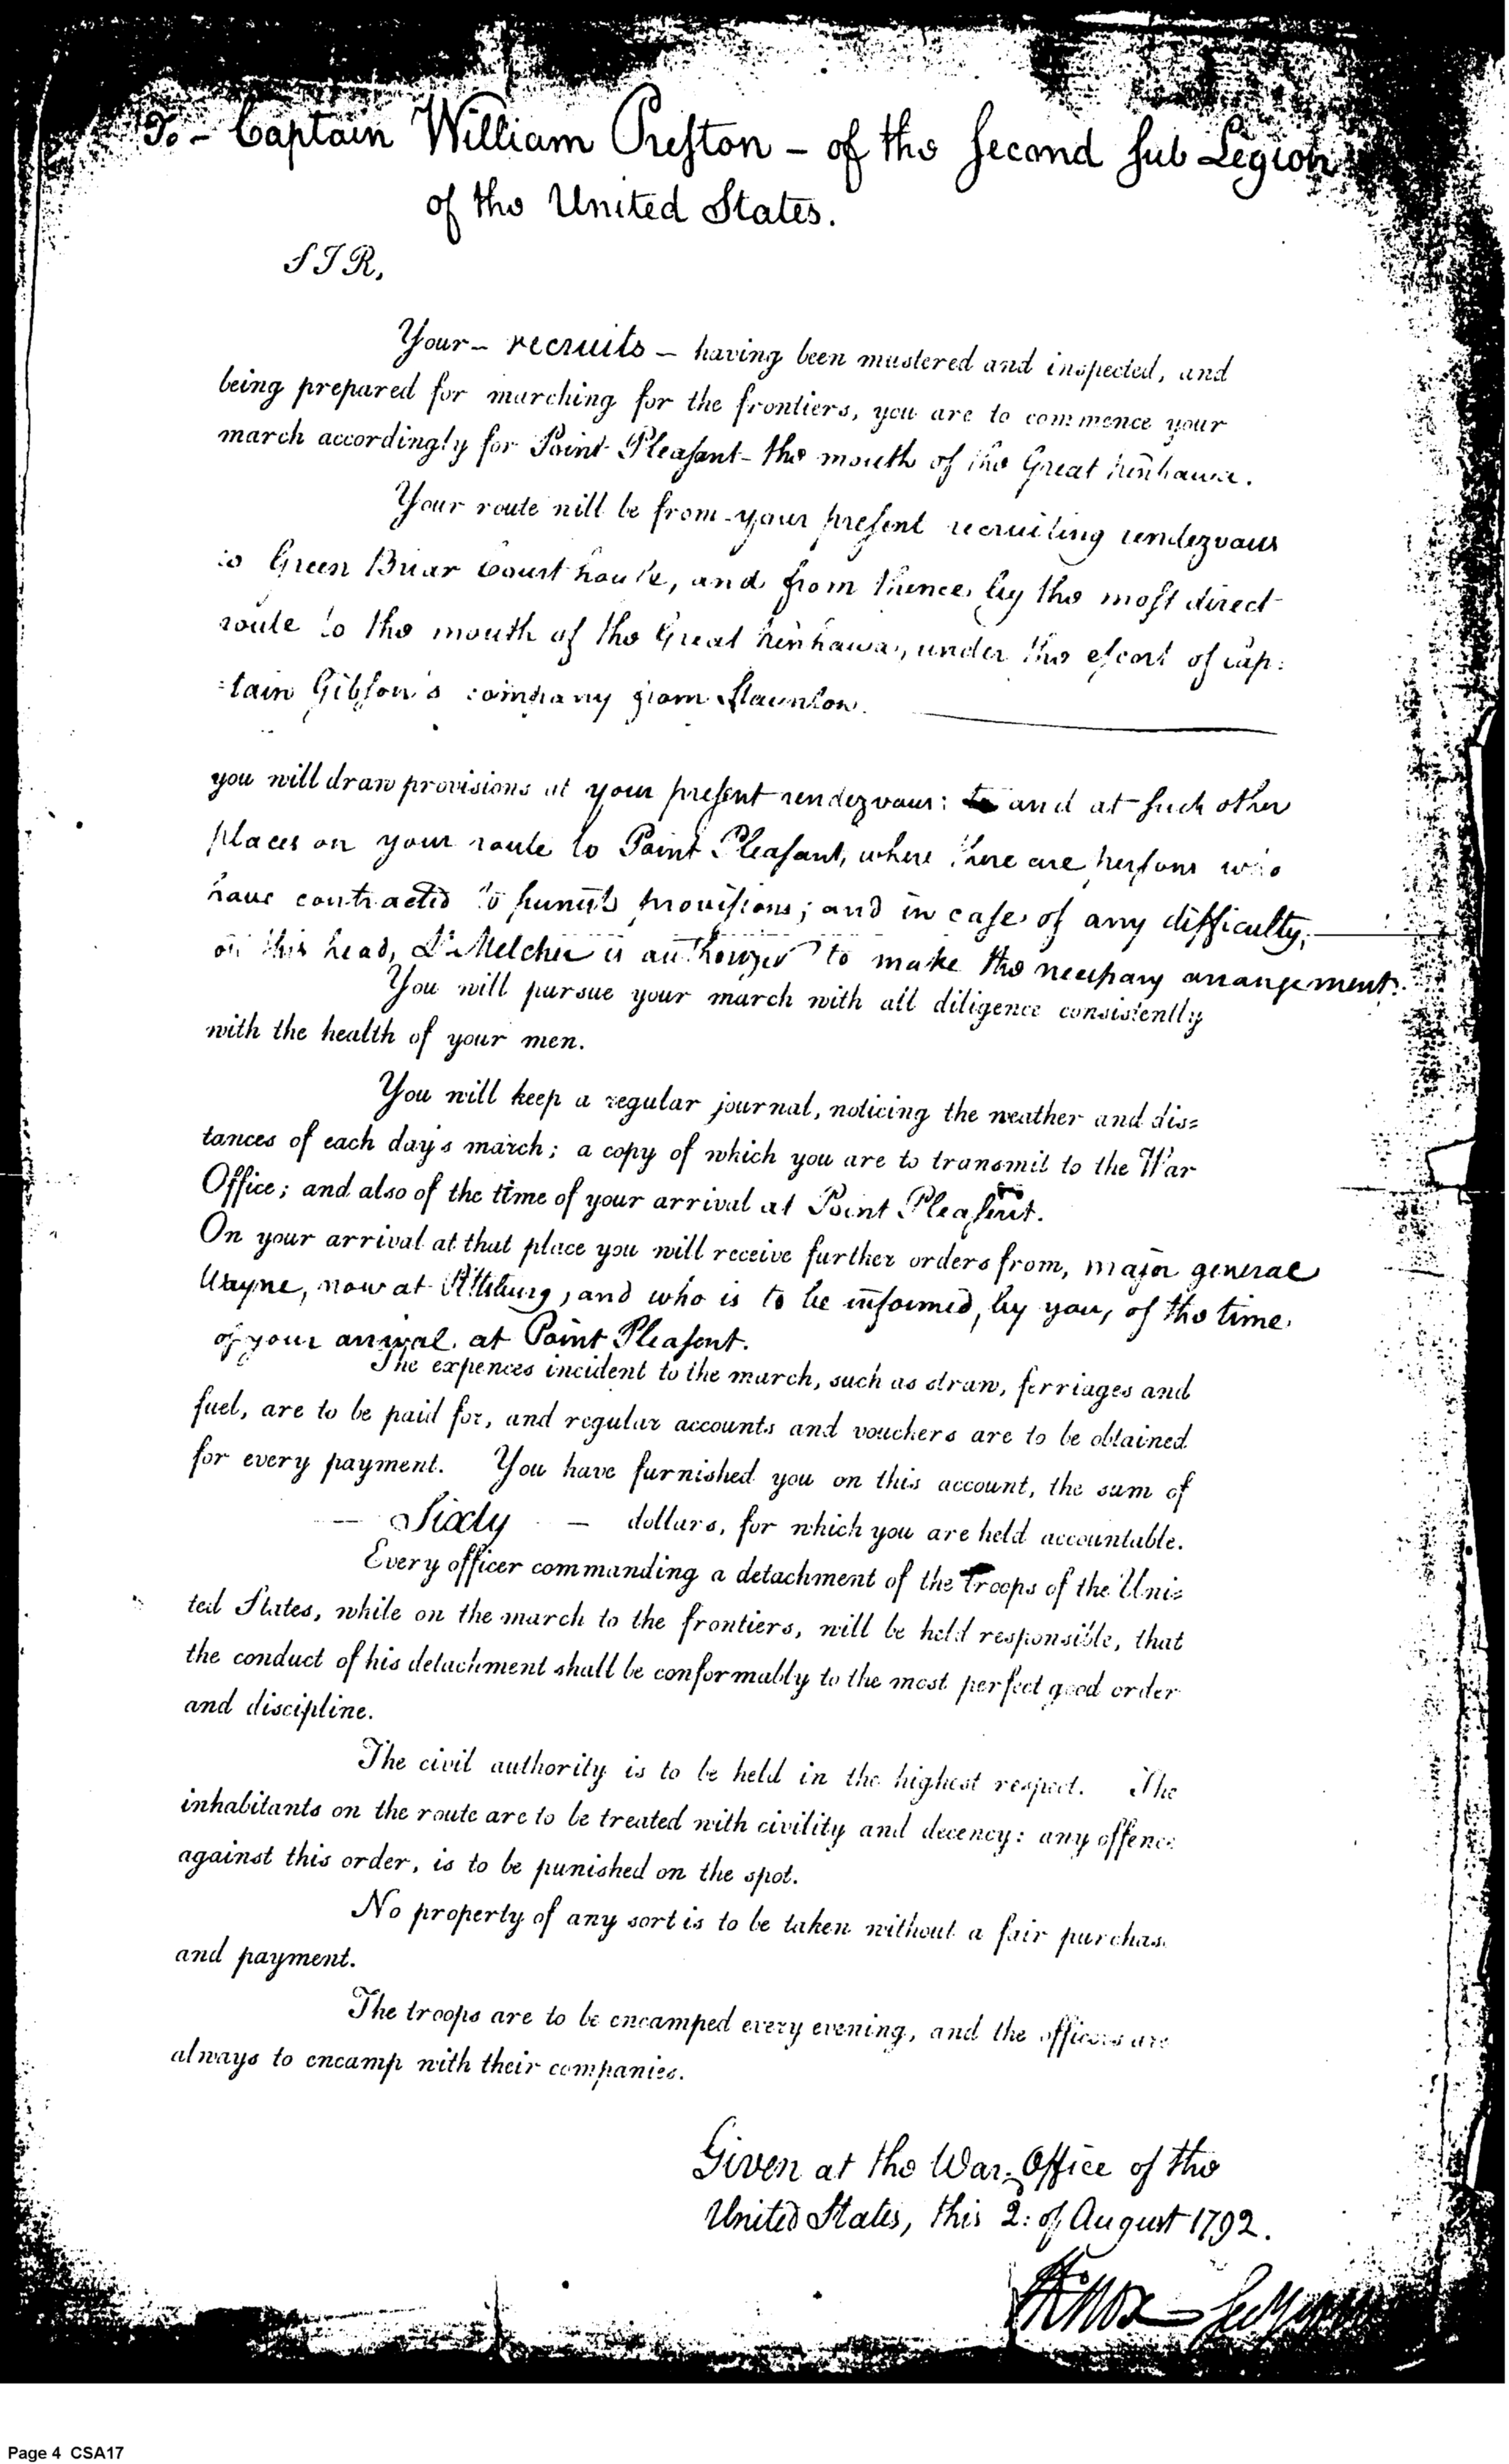 To - Captain William Preston - of the Second Sub Legion
of the United States.
SIR,
Your - recruits - having been mustered and inspected, and
being prepared for marching for the frontiers, you are to commence your
march accordingly for Point Pleasant - the mouth of the Great Kenhawa.
Your route will be from your present recruiting rendezvous
to Green Briar Court house, and from thence, by the most direct
route to the mouth of the Great Kenhawa, under the escort of Cap:
:tain Gibson's company from Staunton.
you will draw provisions at your present rendezvous: and at such other
places on your route to Point Pleasant, where there are persons who
have contracted to furnish provisions; and in case of any difficulty,
on this head, Lt Melcher is authorized to make the necessary arrangement.
You will pursue your march with all diligence consistently
with the health of your men.
You will keep a regular journal, noticing the weather and dis=
tances of each day's march; a copy of which you are to transmit to the War
Office; and also of the time of your arrival at Point Pleasent.
On your arrival at that place you will receive further orders from, major general
Wayne, now at Pittsburg, and who is to be informed, by you, of the time
of your arrival at Point Pleasent.
The expences incident to the march, such as straw, ferriages and
fuel, are to be paid for, and regular accounts and vouchers are to be obtained
for every payment. You have furnished you on this account, the sum of
- Sixty - dollars, for which you are held accountable.
Every officer commanding a detachment of the Troops of the Uni=
ted States, while on the march to the frontiers, will be held responsible, that
the conduct of his detachment shall be conformably to the most perfect good order
and discipline.
The civil authority is to be held in the highest respect. The
inhabitants on the route are to be treated with civility and decency: any offence
against this order, is to be punished on the spot.
No property of any sort is to be taken without a fair purchas
and payment.
The troops are to be encamped every evening, and the officers are
always to encamp with their companies.
Given at the War Office of the
United States, this 2: of August 1792.
HKnox
Page 4 CSA17